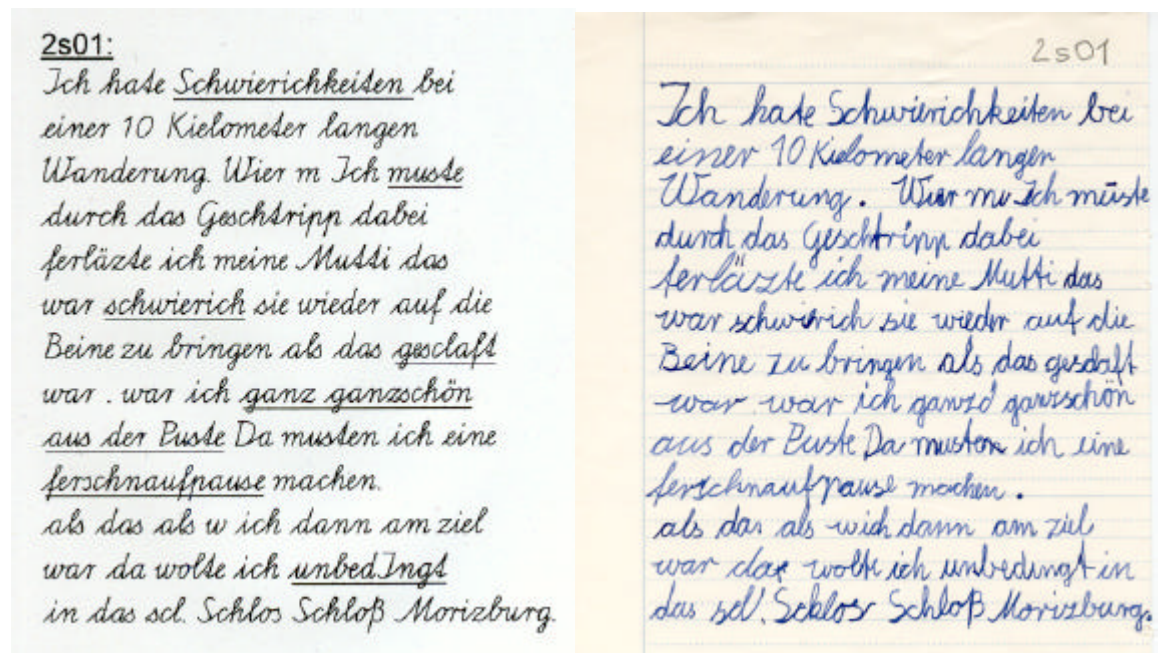 2s01:
Ich hate Schwierichkeiten bei
einer 10 Kielometer langen
Wanderung. Wier m Ich muste
durch das Geschtripp dabei
ferläzte ich meine Mutti das
war schwierich sie wieder auf die
Beine zu bringen als das gesclaft
war . war ich ganz ganzschön
aus der Puste Da musten ich eine
ferschnaufpause machen.
als das als w ich dann am ziel
war da wolte ich unbedIngt
in das scl. Schlos Schloß Morizburg.
2s01
Ich hate Schwierichkeiten bei
einer 10 Kielometer langen
Wanderung. Wier m Ich muste
durch das Geschtripp dabei
ferläzte ich meine Mutti das
war schwierich sie wieder auf die
Beine zu bringen als das gesclaft
war war ich ganz ganzschön
aus der Puste Da musten ich eine
ferschnaufpause machen.
als das als w ich dann am ziel
war da wolte ich unbedingt in
das scl. Schlos Schloß Morizburg.